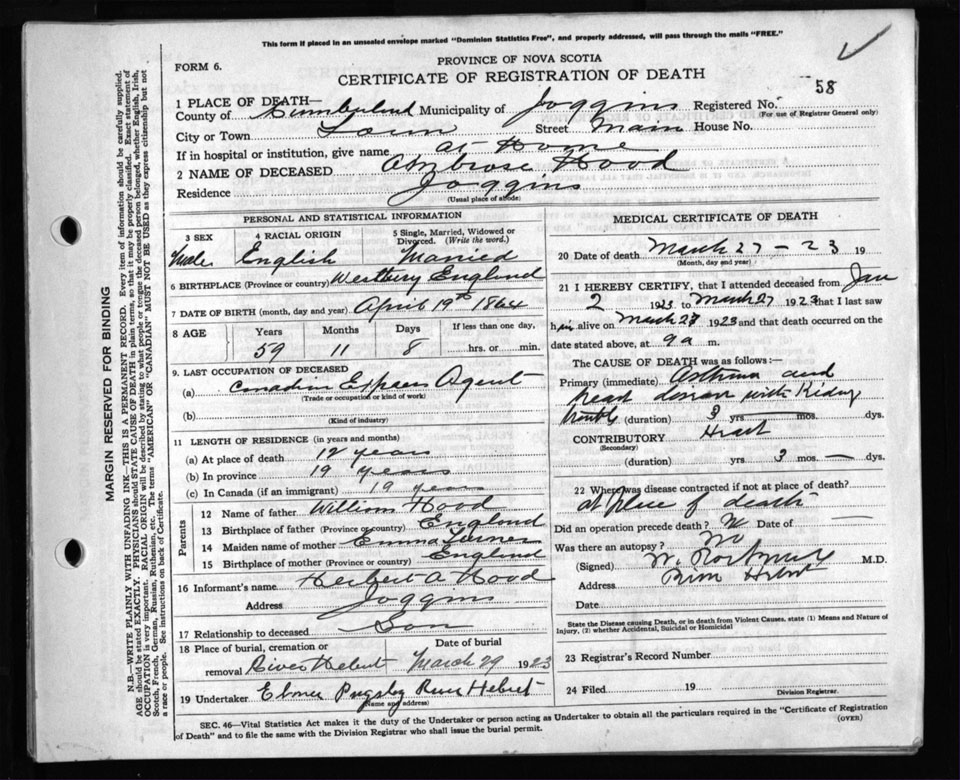 This form if placed in an unsealed envelope marked "Dominion Statistics Free", and properly addressed, will pass through the mails "FREE."
FORM 6.
PROVINCE OF NOVA SCOTIA
CERTIFICATE OF REGISTRATION OF DEATH
58
1 PLACE OF DEATH—
County of Cumberland Municipality of Joggins Registered No.
(For use of Registrar General only)
City or Town Town Street Main House No.
If in hospital or institution, give name at Home
2 NAME OF DECEASED Ambrose Hood
Residence Joggins
(Usual place of abode)
PERSONAL AND STATISTICAL INFORMATION
3 SEX Male
4 RACIAL ORIGIN English
5 Single, Married, Widowed or Divorced. (Write the word.) Married
6 BIRTHPLACE (Province or country) Westbury England
7 DATE OF BIRTH (month, day and year) April 19th 1864
8 AGE Years Months Days If less than one day,
59 11 8 hrs. or min.
9. LAST OCCUPATION OF DECEASED
(a) Canadian Express Agent
(Trade or occupation or kind of work)
(b)
(Kind of industry)
11 LENGTH OF RESIDENCE (in years and months)
(a) At place of death 12 years
(b) In province 19 years
(c) In Canada (if an immigrant) 19 years
Parents
12 Name of father William Hood
13 Birthplace of father (Province or country) England
14 Maiden name of mother Emma Turner
15 Birthplace of mother (Province or country) England
16 Informant's name Herbert A Hood
Address Joggins
17 Relationship to deceased Son
18 Place of burial, cremation or removal River Hebert
Date of burial March 29 1923
19 Undertaker Pugsley River Hebert
(Name and address)
MEDICAL CERTIFICATE OF DEATH
20 Date of death March 27 - 23 19
(Month, day and year)
21 I HEREBY CERTIFY, that I attended deceased from Jan
2 1923 to March 27 1923 that I last saw
him alive on March 27 1923 and that death occurred on the
date stated above, at 9 a m.
The CAUSE OF DEATH was as follows:—
Primary (immediate) Asthma and
heart disease with Kidney
trouble (duration) 3 yrs mos. dys.
CONTRIBUTORY Heart
(Secondary)
(duration) yrs 3 mos — dys.
22 Where was disease contracted if not at place of death?
at place of death
Did an operation precede death? No Date of
Was there an autopsy? No
(Signed) W. M.D.
Address River Hebert
Date
State the Disease causing Death, or in death from Violent Causes, state (1) Means and Nature of
Injury, (2) whether Accidental, Suicidal or Homicidal
23 Registrar's Record Number
24 Filed 19
Division Registrar.
SEC. 46—Vital Statistics Act makes it the duty of the Undertaker or person acting as Undertaker to obtain all the particulars required in the "Certificate of Registration
of Death" and to file the same with the Division Registrar who shall issue the burial permit.
(OVER)
MARGIN RESERVED FOR BINDING
N.B.—WRITE PLAINLY WITH UNFADING INK—THIS IS A PERMANENT RECORD. Every item of information should be carefully supplied.
AGE should be stated EXACTLY. PHYSICIANS should STATE CAUSE OF DEATH in plain terms, so that it may be properly classified. Exact statement of
OCCUPATION is very important. RACIAL ORIGIN will be described by stating to what people or tongue the deceased person belonged, whether English, Irish,
Scotch, French, German, Russian, Ruthenian, etc. The terms "AMERICAN" OR "CANADIAN" MUST NOT BE USED as they express citizenship but not
a race or people. See instructions on back of Certificate.